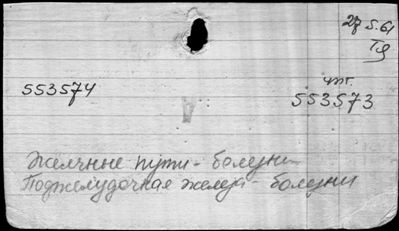 27 5.61
Тд
553574
чит.
553573
Желчные пути - болезни
Поджелудочная железа - болезни